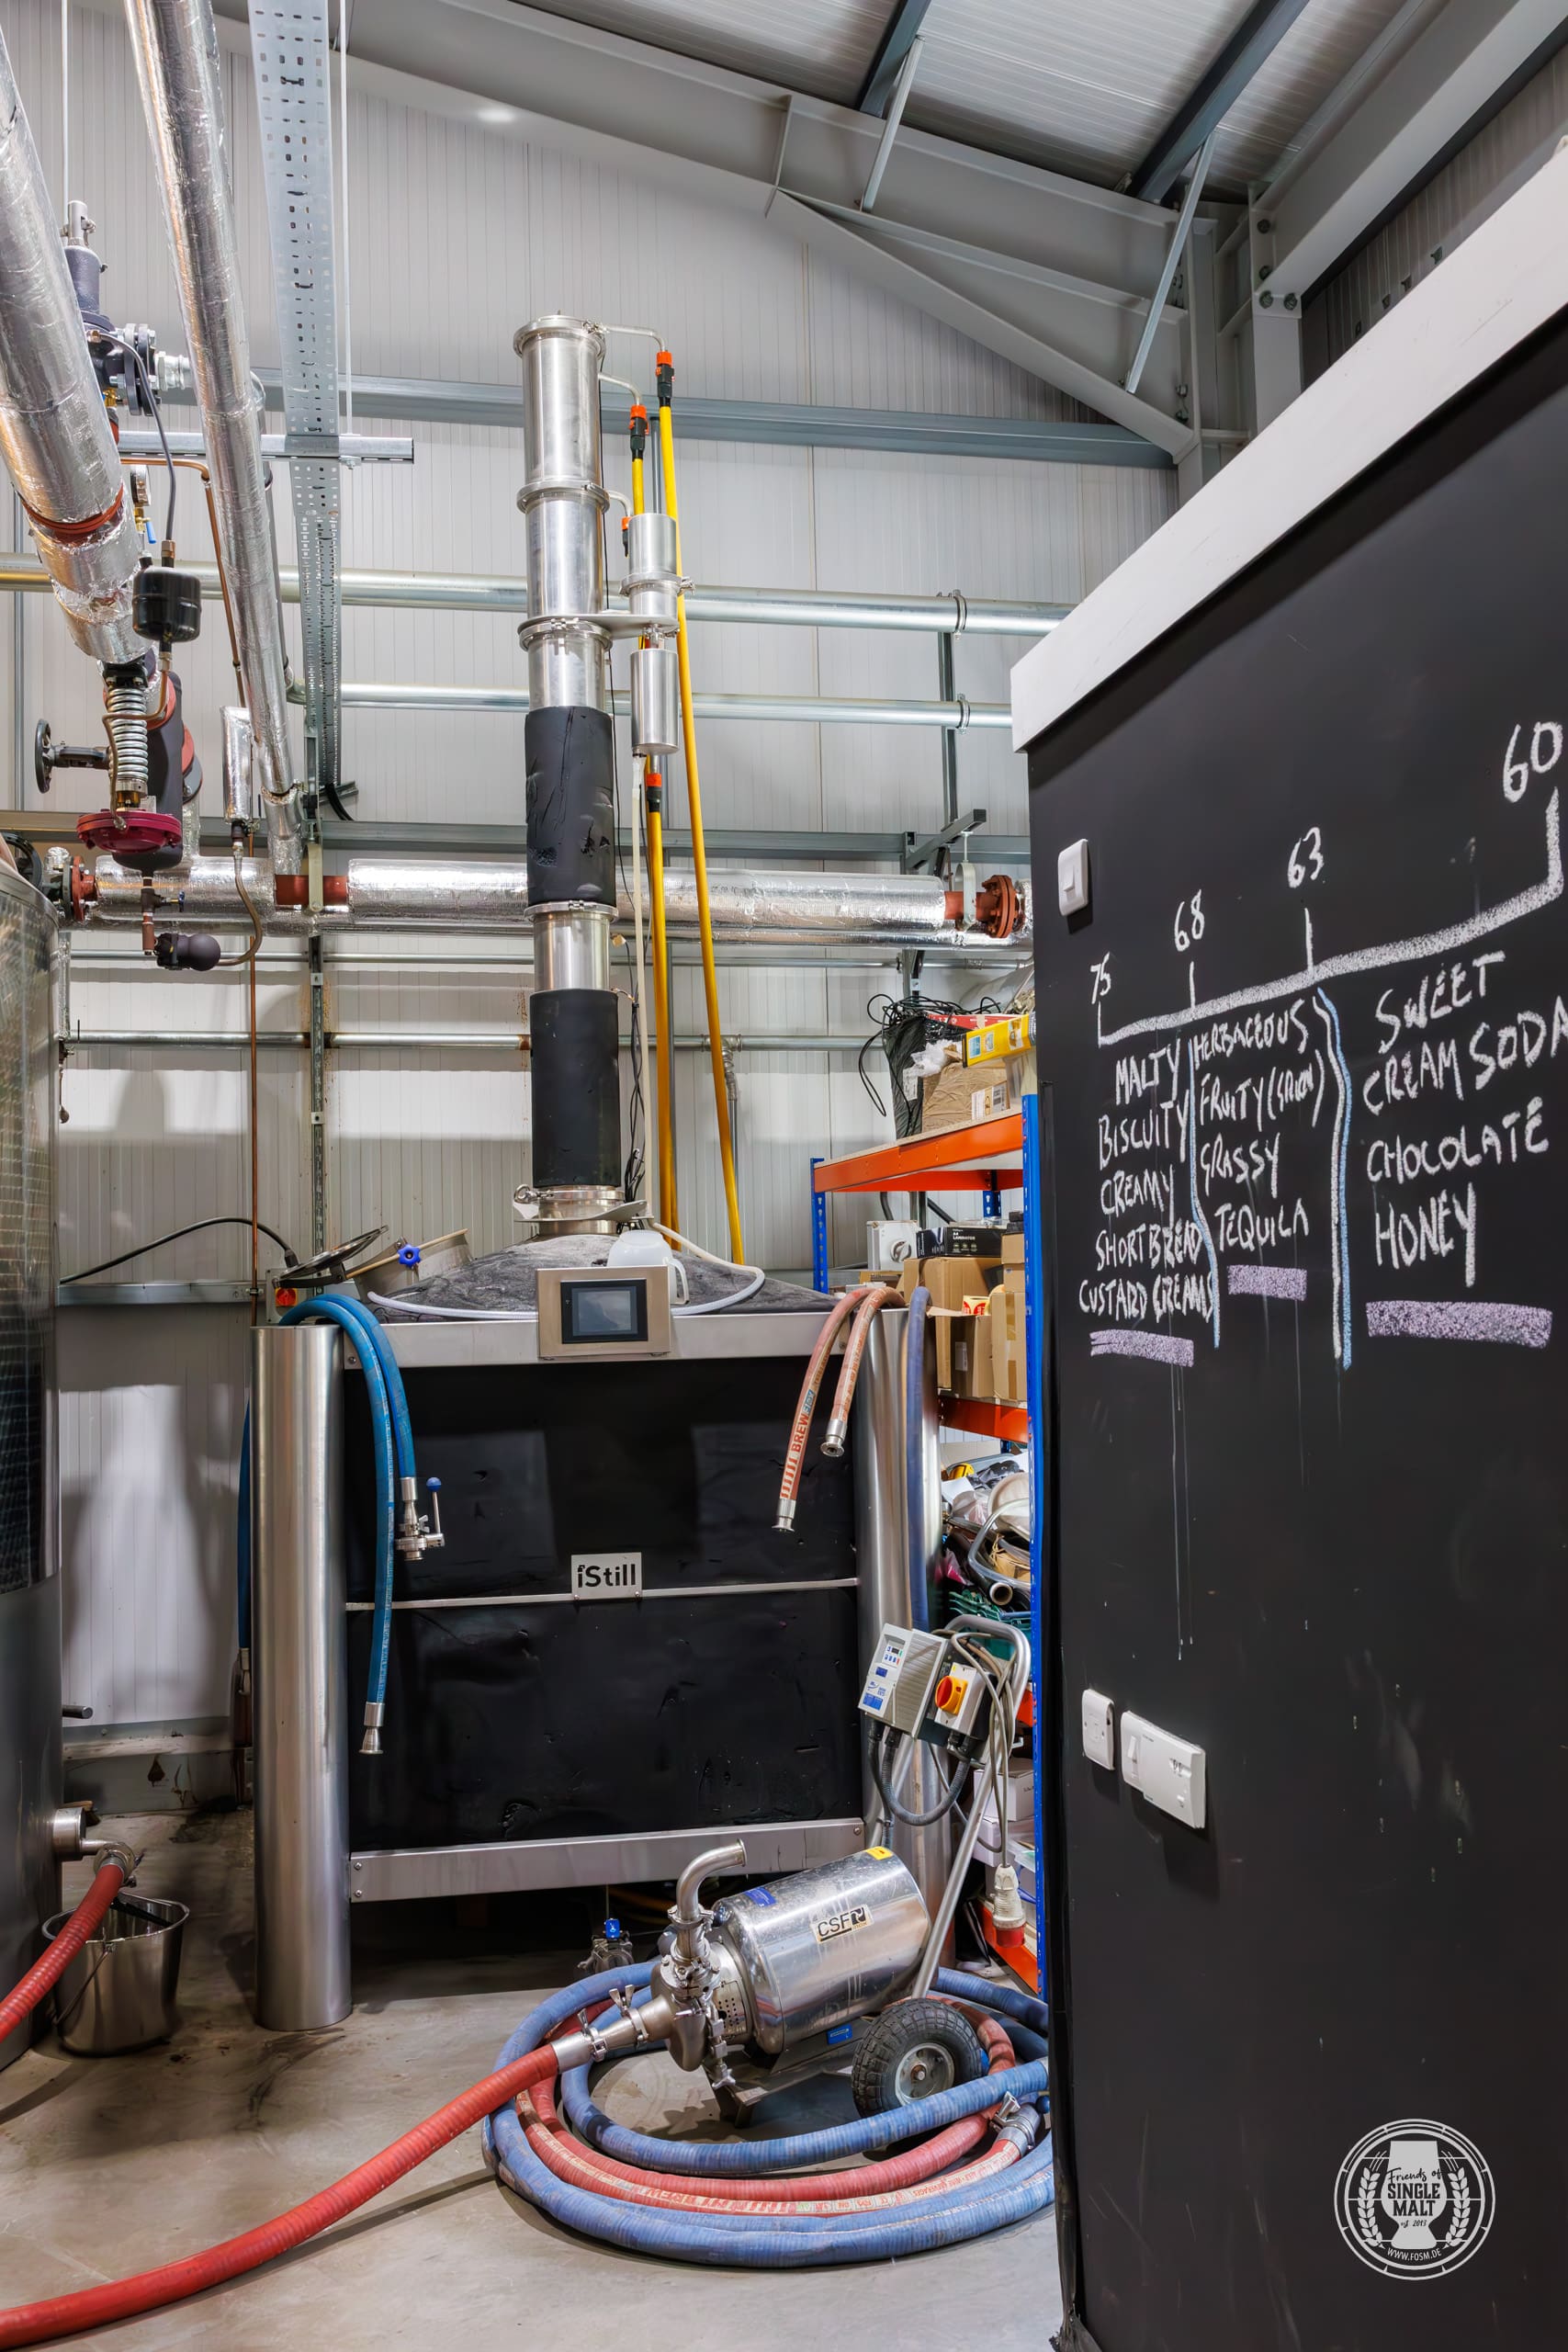 60
63
68
75
MALTY
BISCUITY
CREAMY
SHORTBREAD
CUSTARD CREAMS
HERBACEOUS
FRUITY (GREEN)
GRASSY
TEQUILA
SWEET
CREAM SODA
CHOCOLATE
HONEY
BREW
iStill
CSF
Friends of
SINGLE
MALT
est 2013
WWW.FOSM.DE